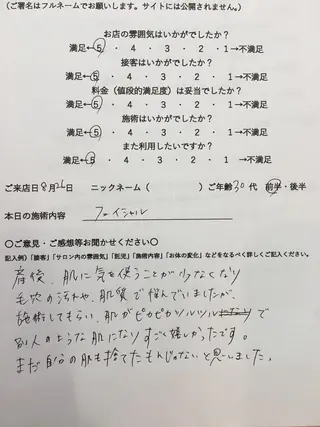 (ご署名はフルネームでお願いします。サイトには公開されません。)
お店の雰囲気はいかがでしたか?
満足←5 ・ 4 ・ 3 ・ 2 ・ 1→不満足
接客はいかがでしたか?
満足←5 ・ 4 ・ 3 ・ 2 ・ 1→不満足
料金(値段的満足度)は妥当でしたか?
満足←5 ・ 4 ・ 3 ・ 2 ・ 1→不満足
施術はいかがでしたか?
満足←5 ・ 4 ・ 3 ・ 2 ・ 1→不満足
また利用したいですか?
満足←5 ・ 4 ・ 3 ・ 2 ・ 1→不満足
ご来店日8月26日 ニックネーム( )ご年齢30代 前半・後半
本日の施術内容 フェイシャル
〇ご意見・ご感想等お聞かせください〇
記入例)「接客」「サロン内の雰囲気」「託児」「施術内容」「お体の変化」などをなるべく詳しくご記入ください。
産後、肌に気を使うことが少なくなり
毛穴の汚れや、肌質で悩んでいましたが、
施術してもらい、肌がピカピカツルツルで
別人のような肌になりすごく嬉しかったです。
まだ自分の肌も捨てたもんじゃないと思いました。